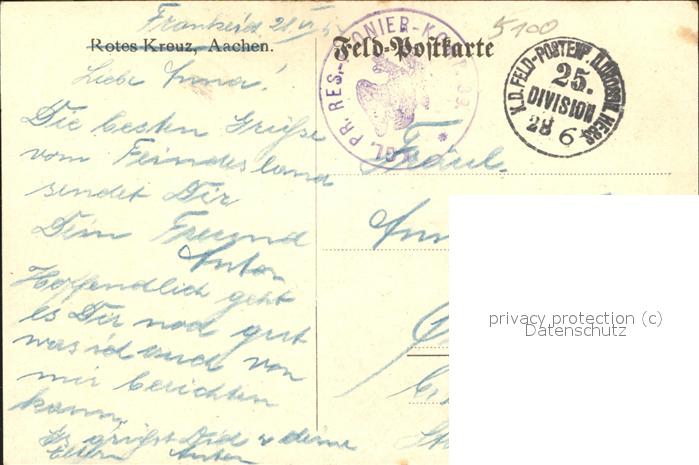 Frankreich 28. VI.
Rotes Kreuz, Aachen.
Feld-Postkarte
5100
KGL. PR. RES.-PIONIER-KOMP. 39.
K.D. FELD-POSTEXP.
25.
DIVISION
28 6
Liebe Anna!
Die besten Grüße
vom Feindesland
sendet Dir
Dein Freund
Anton
Hoffendlich geht
es Dir noch gut
was ich auch von
mir berichten
kann.
Es grüßt Dich u deine
Eltern Anton
Fräul.
privacy protection (c)
Datenschutz